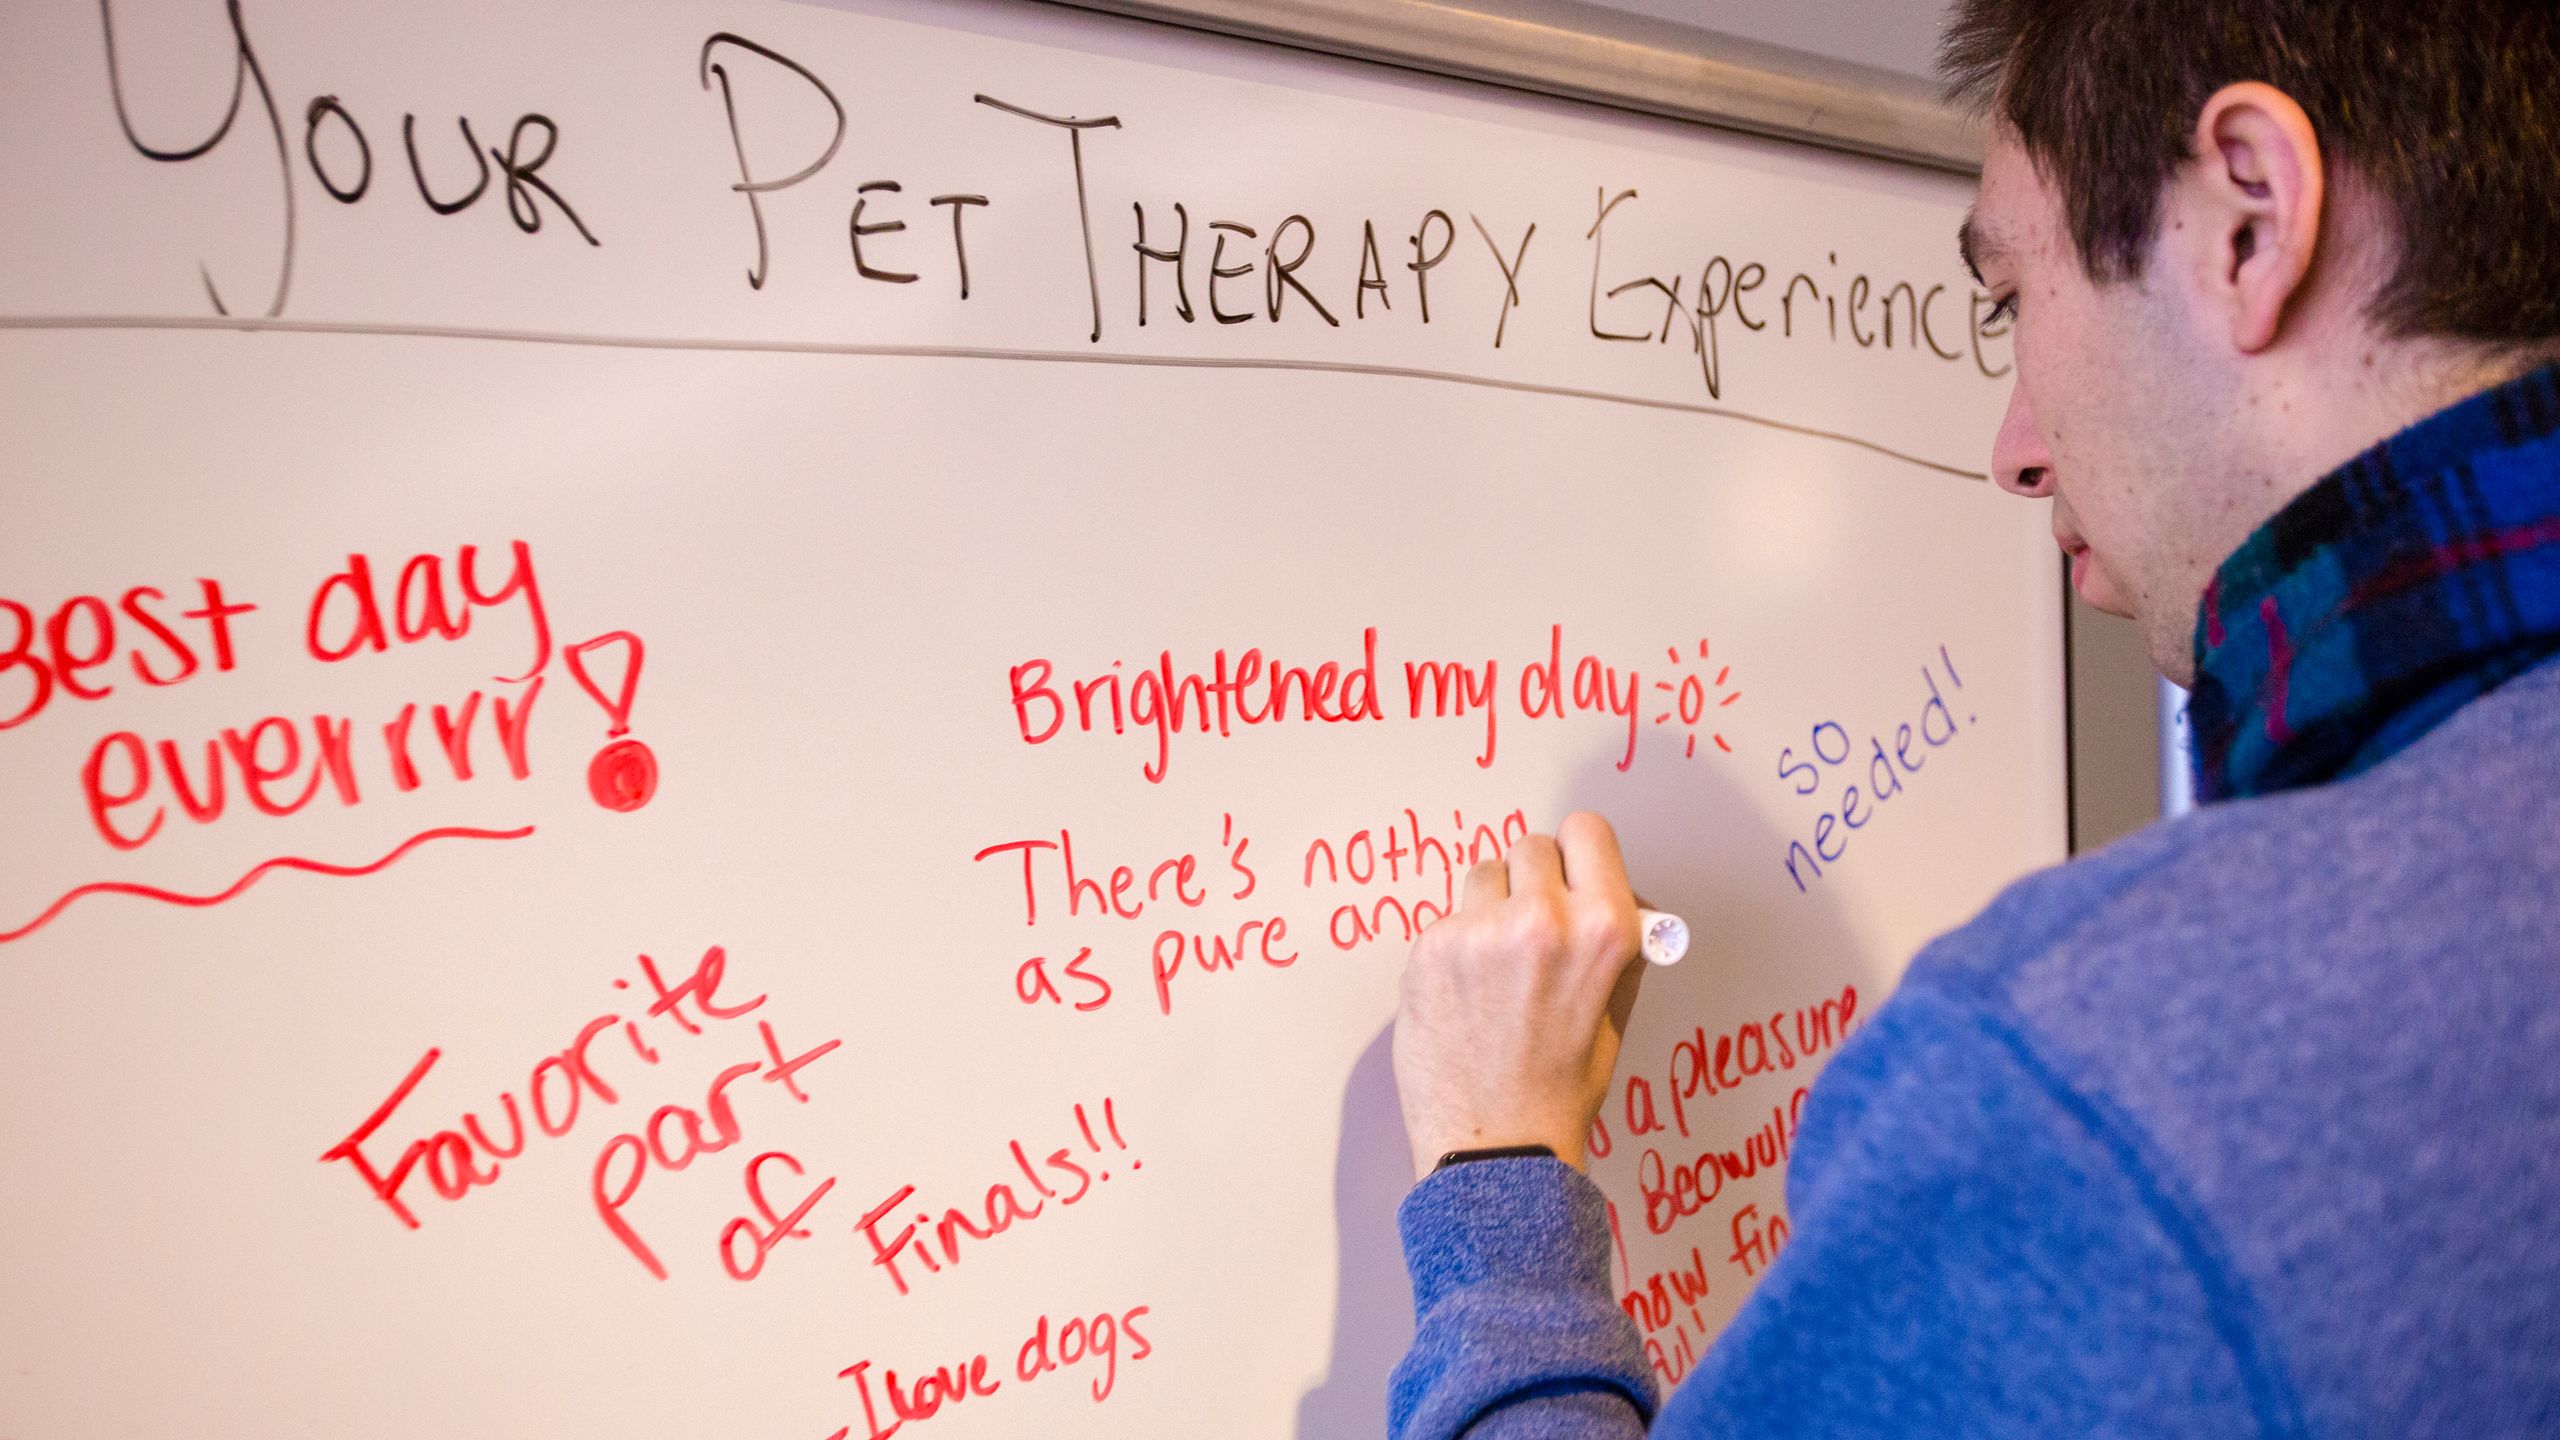 Your Pet Therapy Experience
Best day
everrrrr!
Brightened my day
so
needed!
There's nothing
as pure and
Favorite
part
of
Finals!!
a pleasure
Beowulf
now
- I love dogs